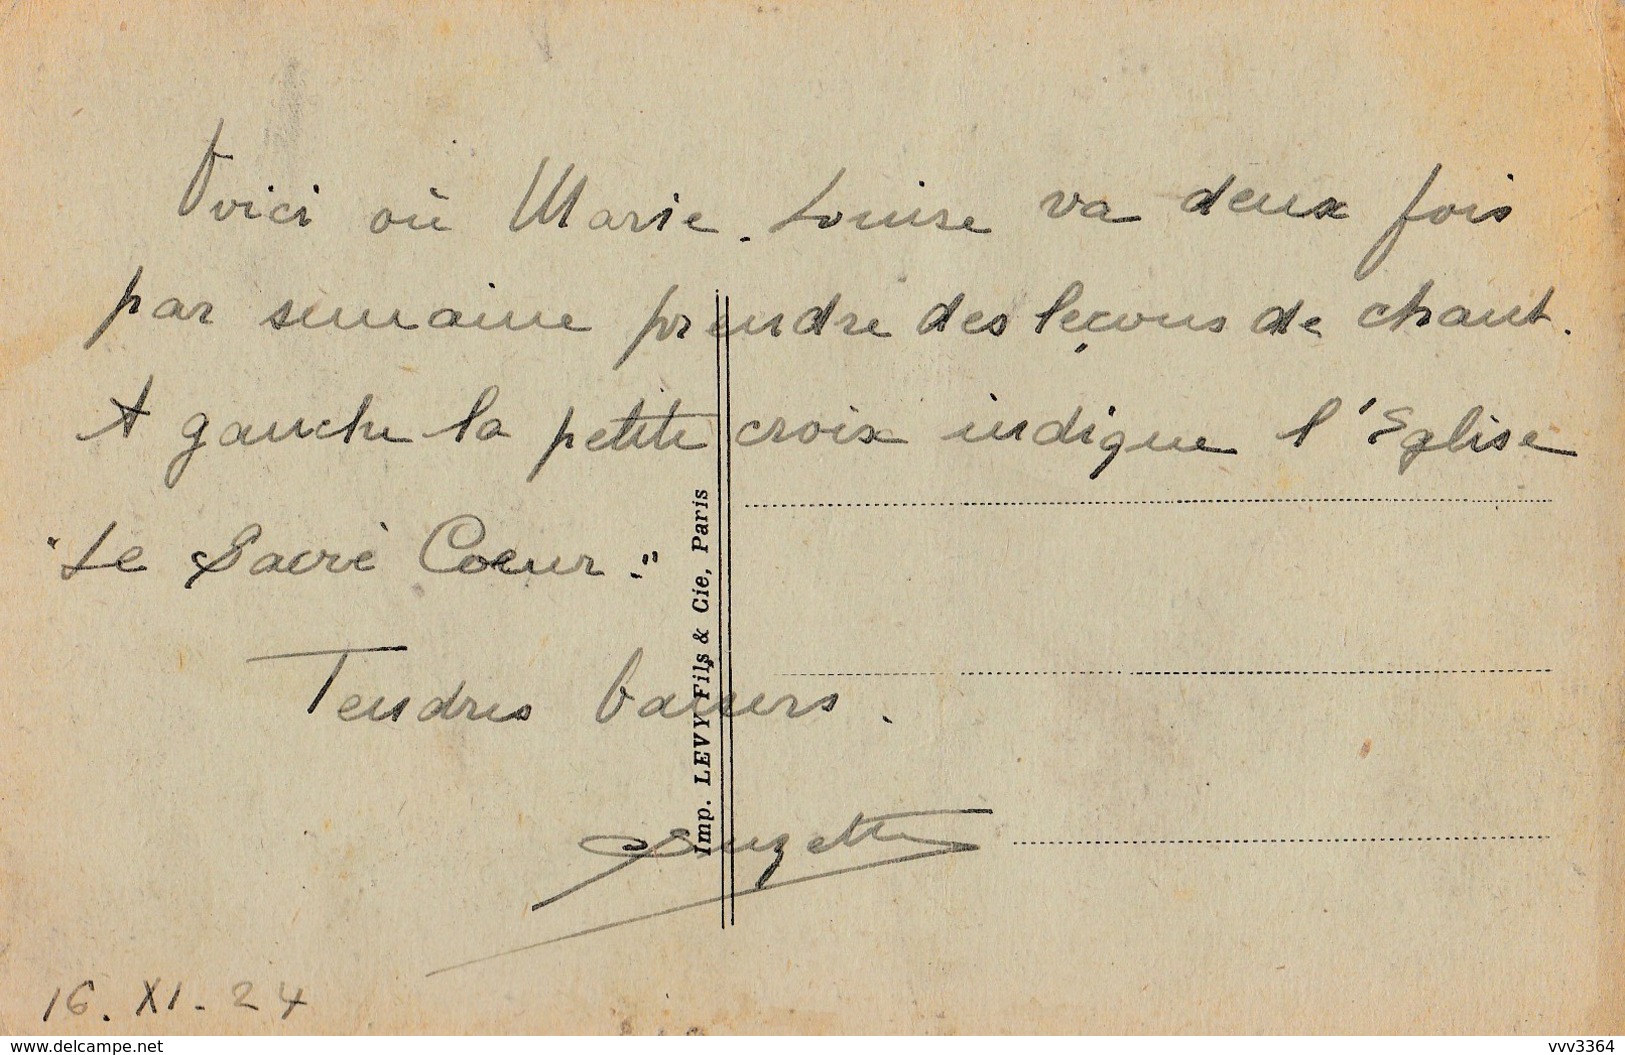 Voici où Marie-Louise va deux fois
par semaine prendre des leçons de chant.
A gauche la petite croix indique l'Eglise
"Le Sacré Coeur."
Tendres baisers.
Suzette
16. XI. 24
Imp. LEVY Fils & Cie, Paris
www.delcampe.net
vvv3364